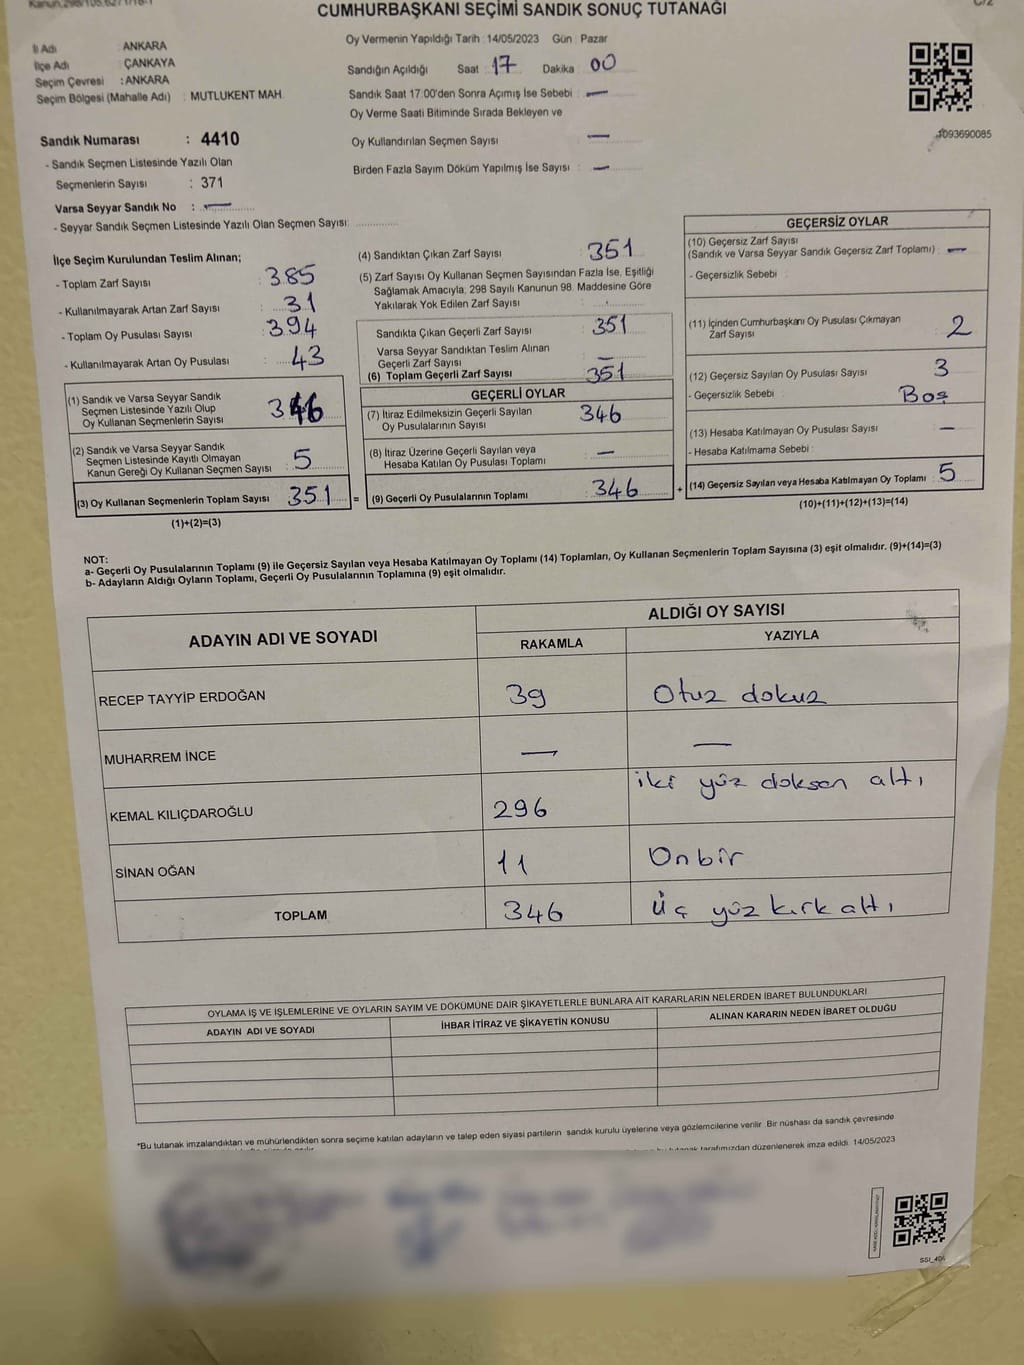 CUMHURBAŞKANI SEÇİMİ SANDIK SONUÇ TUTANAĞI
İl Adı : ANKARA
İlçe Adı : ÇANKAYA
Seçim Çevresi : ANKARA
Seçim Bölgesi (Mahalle Adı) : MUTLUKENT MAH.
Sandık Numarası : 4410
- Sandık Seçmen Listesinde Yazılı Olan
Seçmenlerin Sayısı : 371
Varsa Seyyar Sandık No : —
- Seyyar Sandık Seçmen Listesinde Yazılı Olan Seçmen Sayısı:
Oy Vermenin Yapıldığı Tarih : 14/05/2023 Gün : Pazar
Sandığın Açıldığı Saat : 17 Dakika : 00
Sandık Saat 17.00'den Sonra Açımış İse Sebebi : —
Oy Verme Saati Bitiminde Sırada Bekleyen ve
Oy Kullandırılan Seçmen Sayısı : —
Birden Fazla Sayım Döküm Yapılmış İse Sayısı : —
1093690085
İlçe Seçim Kurulundan Teslim Alınan;
- Toplam Zarf Sayısı : 385
- Kullanılmayarak Artan Zarf Sayısı : 31
- Toplam Oy Pusulası Sayısı : 394
- Kullanılmayarak Artan Oy Pusulası : 43
(1) Sandık ve Varsa Seyyar Sandık
Seçmen Listesinde Yazılı Olup
Oy Kullanan Seçmenlerin Sayısı : 346
(2) Sandık ve Varsa Seyyar Sandık
Seçmen Listesinde Kayıtlı Olmayan
Kanun Gereği Oy Kullanan Seçmen Sayısı : 5
(3) Oy Kullanan Seçmenlerin Toplam Sayısı : 351
(1)+(2)=(3)
(4) Sandıktan Çıkan Zarf Sayısı : 351
(5) Zarf Sayısı Oy Kullanan Seçmen Sayısından Fazla İse, Eşitliği
Sağlamak Amacıyla; 298 Sayılı Kanunun 98. Maddesine Göre
Yakılarak Yok Edilen Zarf Sayısı :
Sandıkta Çıkan Geçerli Zarf Sayısı : 351
Varsa Seyyar Sandıktan Teslim Alınan
Geçerli Zarf Sayısı : —
(6) Toplam Geçerli Zarf Sayısı : 351
GEÇERLİ OYLAR
(7) İtiraz Edilmeksizin Geçerli Sayılan
Oy Pusulalarının Sayısı : 346
(8) İtiraz Üzerine Geçerli Sayılan veya
Hesaba Katılan Oy Pusulası Toplamı : —
= (9) Geçerli Oy Pusulalarının Toplamı : 346 +
GEÇERSİZ OYLAR
(10) Geçersiz Zarf Sayısı
(Sandık ve Varsa Seyyar Sandık Geçersiz Zarf Toplamı) : —
- Geçersizlik Sebebi :
(11) İçinden Cumhurbaşkanı Oy Pusulası Çıkmayan
Zarf Sayısı : 2
(12) Geçersiz Sayılan Oy Pusulası Sayısı : 3
- Geçersizlik Sebebi : Boş
(13) Hesaba Katılmayan Oy Pusulası Sayısı : —
- Hesaba Katılmama Sebebi :
(14) Geçersiz Sayılan veya Hesaba Katılmayan Oy Toplamı : 5
(10)+(11)+(12)+(13)=(14)
NOT:
a- Geçerli Oy Pusulalarının Toplamı (9) ile Geçersiz Sayılan veya Hesaba Katılmayan Oy Toplamı (14) Toplamları, Oy Kullanan Seçmenlerin Toplam Sayısına (3) eşit olmalıdır. (9)+(14)=(3)
b- Adayların Aldığı Oyların Toplamı, Geçerli Oy Pusulalarının Toplamına (9) eşit olmalıdır.
ADAYIN ADI VE SOYADI ALDIĞI OY SAYISI
RAKAMLA YAZIYLA
RECEP TAYYİP ERDOĞAN 39 Otuz dokuz
MUHARREM İNCE — —
KEMAL KILIÇDAROĞLU 296 iki yüz doksan altı
SİNAN OĞAN 11 Onbir
TOPLAM 346 Üç yüz kırk altı
OYLAMA İŞ VE İŞLEMLERİNE VE OYLARIN SAYIM VE DÖKÜMÜNE DAİR ŞİKAYETLERLE BUNLARA AİT KARARLARIN NELERDEN İBARET BULUNDUKLARI
ADAYIN ADI VE SOYADI İHBAR İTİRAZ VE ŞİKAYETİN KONUSU ALINAN KARARIN NEDEN İBARET OLDUĞU
*Bu tutanak imzalandıktan ve mühürlendikten sonra seçime katılan adayların ve talep eden siyasi partilerin sandık kurulu üyelerine veya gözlemcilerine verilir. Bir nüshası da sandık çevresinde
tarafımızdan düzenlenerek imza edildi. 14/05/2023